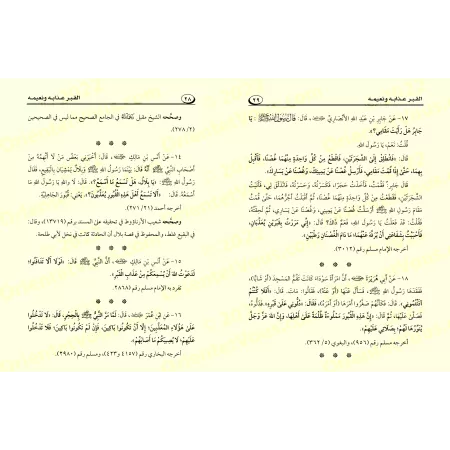 القبر عذابه ونعيمه
٢٨
وصحَّحه الشيخ مقبل في الجامع الصحيح مما ليس في الصحيحين
(٢/ ٢٧٨).
١٤- عن أنس بن مالك، قال: أخبرني بعض من لا أتهمه من
أصحاب النبي ﷺ أنه قال: بينما رسول الله ﷺ وبلال يمشيان بالبقيع، فقال
رسول الله ﷺ: «يا بلال، هل تسمع ما أسمع؟»، قال: لا والله يا رسول الله ما
أسمعه، قال: «ألا تسمع أهل هذه القبور يعذَّبون؟»، يعني: قبور الجاهلية.
أخرجه أحمد (٢١/ ٢٧١).
وصحَّحه شعيب الأرناؤوط في تحقيقه على المسند برقم (١٣٧١٩)، وقال:
في البقيع غلط، والمحفوظ في قصة بلال أن الحادثة كانت في نخل لأبي طلحة.
١٥- عن أنس بن مالك، أن النبي ﷺ قال: «لولا ألا تدافنوا؛
لدعوت الله أن يسمعكم من عذاب القبر».
تفرد به الإمام مسلم رقم (٢٨٦٨).
١٦- عن ابن عمر، قال: لما مر النبي ﷺ بالحجر، قال: «لا تدخلوا
على هؤلاء المعذَّبين، إلا أن تكونوا باكين، فإن لم تكونوا باكين، فلا تدخلوا
عليهم؛ لا يصيبكم ما أصابهم».
أخرجه البخاري رقم (٤١٥٧ و٤٢٣)، ومسلم رقم (٢٩٨٠).
٢٩
القبر عذابه ونعيمه
١٧- عن جابر بن عبد الله الأنصاري، قال: قال رسول الله ﷺ: «يا
جابر هل رأيت مقامي؟».
قلت: نعم، يا رسول الله.
قال: «فانطلق إلى الشجرتين، فاقطع من كل واحدة منهما غصنًا، فأقبل
بهما، حتى إذا قمت مقامي، فأرسل غصنًا عن يمينك، وغصنًا عن يسارك».
قال جابر: فقمت، فأخذت حجرًا، فكسرته، وحسرته، فانذلق لي، فأتيت
الشجرتين، فقطعت من كل واحدة منهما غصنًا، ثم أقبلت أجرهما، حتى قمت
مقام رسول الله ﷺ أرسلت غصنًا عن يميني، وغصنًا عن يساري، ثم لحقته،
فقلت: قد فعلت يا رسول الله، فعم ذاك؟ قال: «إني مررت بقبرين يعذبان،
فأحببت بشفاعتي أن يرفه عنهما، ما دام الغصنان رطبين».
أخرجه الإمام مسلم رقم (٣٠١٢).
١٨- عن أبي هريرة، أن امرأة سوداء كانت تقم المسجد (أو شابًّا)،
ففقدها رسول الله ﷺ، فسأل عنها (أو عنه)، فقالوا: مات. قال: «أفلا كنتم
آذنتموني»، قال: فكأنهم صغروا أمرها (أو أمره)، فقال: «دلوني على قبره»، فدلوه،
فصلى عليها، ثم قال: «إن هذه القبور مملوءة ظلمة على أهلها، وإن الله عز وجل
ينورها لهم؛ بصلاتي عليهم».
أخرجه مسلم رقم (٩٥٦)، والبغوي (٥/ ٣٦٢).